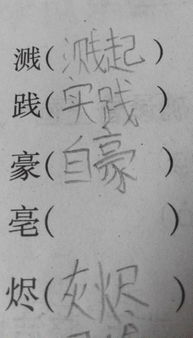 溅(溅起)
践(实践)
豪(自豪)
亳( )
烬(灰烬)